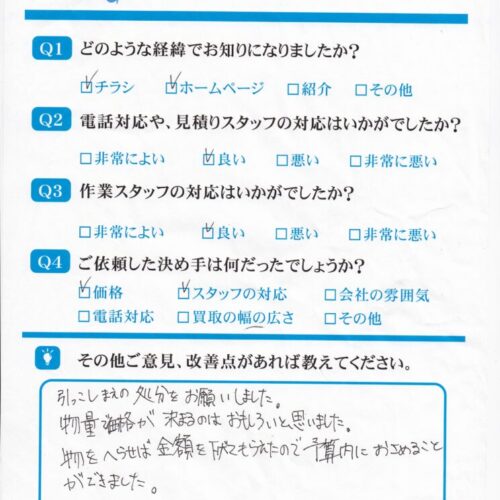 Q1 どのような経緯でお知りになりましたか?
☑チラシ ☑ホームページ □紹介 □その他
Q2 電話対応や、見積りスタッフの対応はいかがでしたか?
□非常によい ☑良い □悪い □非常に悪い
Q3 作業スタッフの対応はいかがでしたか?
□非常によい ☑良い □悪い □非常に悪い
Q4 ご依頼した決め手は何だったでしょうか?
☑価格 ☑スタッフの対応 □会社の雰囲気
□電話対応 □買取の幅の広さ □その他
その他ご意見、改善点があれば教えてください。
引っこしまえの処分をお願いしました。
物量で価格が決まるのはおもしろいと思いました。
物をへらせば金額を下げてもらえたので予算内におさめること
ができました。